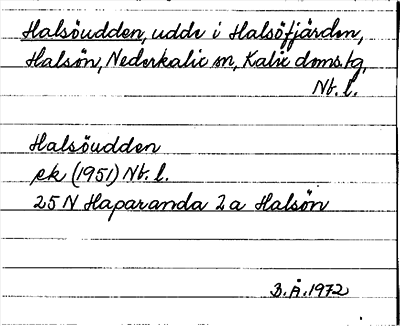 Halsöudden, udde i Halsöfjärden,
Halsön, Nederkalix sn, Kalix domstg,
Nb. l.
Halsöudden
ek (1951) Nb. l.
25 N Haparanda 2 a Halsön
B.Å. 1972